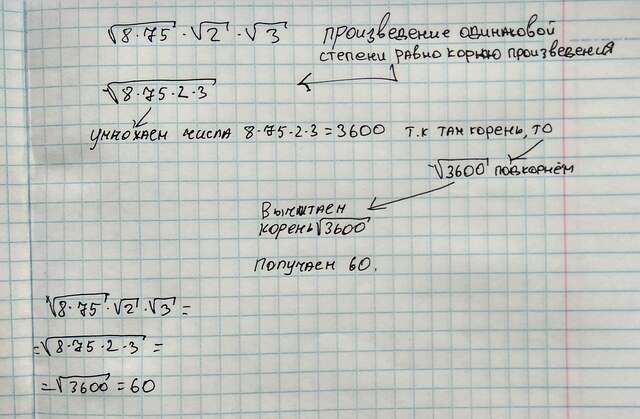 √8·75 · √2 · √3 произведение одинаковой
степени равно корню произведения
√8·75·2·3
умножаем числа 8·75·2·3=3600 т.к там корень, то
√3600 под корнем
Вычитаем
корень √3600
Получаем 60.
√8·75 · √2 · √3 =
=√8·75·2·3 =
=√3600 = 60